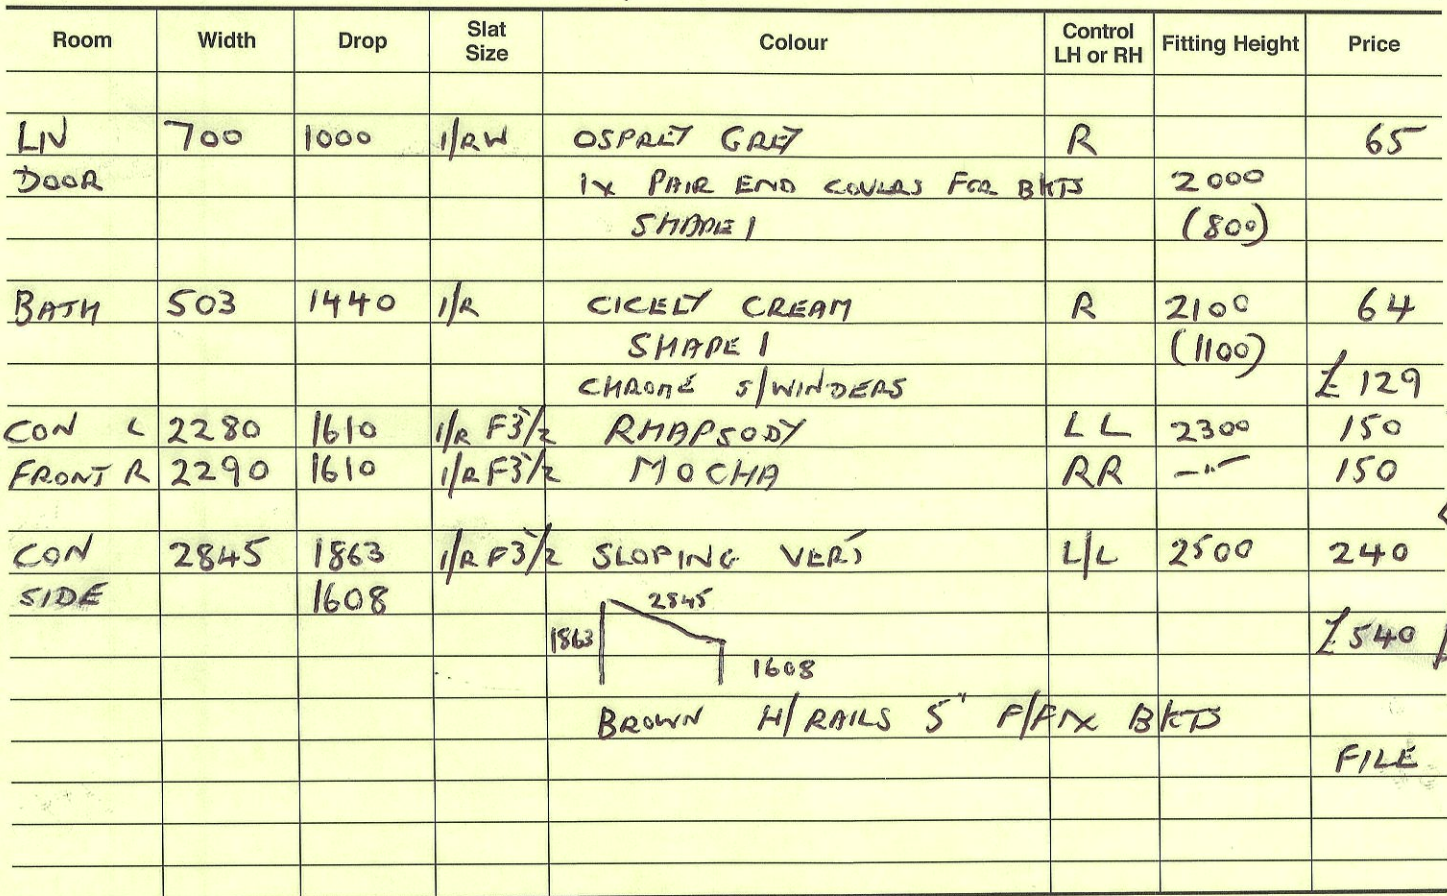 Room Width Drop Slat Size Colour Control LH or RH Fitting Height Price
LIV 700 1000 I/RW OSPREY GREY R 65
DOOR 1x PAIR END COVERS FOR BKTS 2000
SHAPE 1 (800)
BATH 503 1440 I/R CICELY CREAM R 2100 64
SHAPE 1 (1100)
CHROME S/WINDERS £129
CON L 2280 1610 I/R F3½ RHAPSODY LL 2300 150
FRONT R 2290 1610 I/R F3½ MOCHA RR —"— 150
CON 2845 1863 I/R F3½ SLOPING VERS L/L 2500 240
SIDE 1608 2845
1863 £540
1608
BROWN H/RAILS 5" F/FIX BKTS
FILE